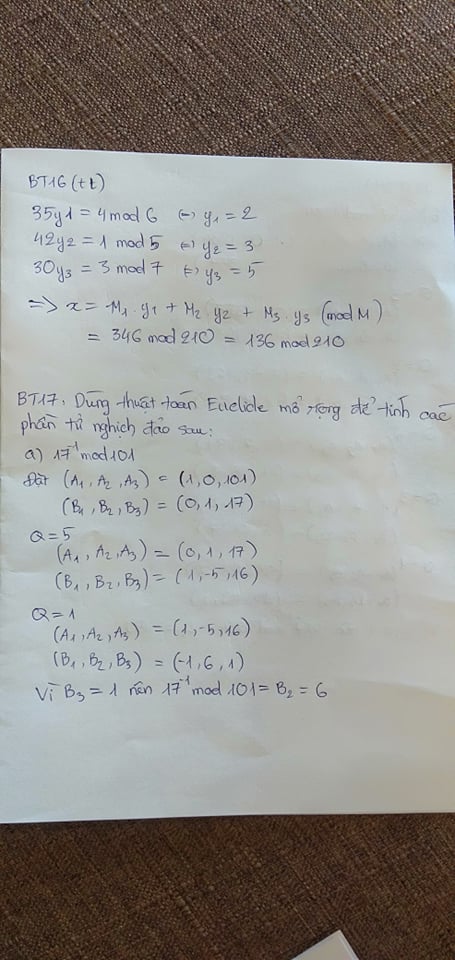 BT16 (tt)
35y1 = 4 mod 6 ⇔ y1 = 2
42y2 = 1 mod 5 ⇔ y2 = 3
30y3 = 3 mod 7 ⇔ y3 = 5
=> x = M1 . y1 + M2 y2 + M3 . y3 (mod M)
= 346 mod 210 = 136 mod 210
BT17. Dùng thuật toán Euclide mở rộng để tính các
phần tử nghịch đảo sau:
a) 17⁻¹ mod 101
Đặt (A1, A2, A3) = (1, 0, 101)
(B1, B2, B3) = (0, 1, 17)
Q = 5
(A1, A2, A3) = (0, 1, 17)
(B1, B2, B3) = (1, -5, 16)
Q = 1
(A1, A2, A3) = (1, -5, 16)
(B1, B2, B3) = (-1, 6, 1)
Vì B3 = 1 nên 17⁻¹ mod 101 = B2 = 6